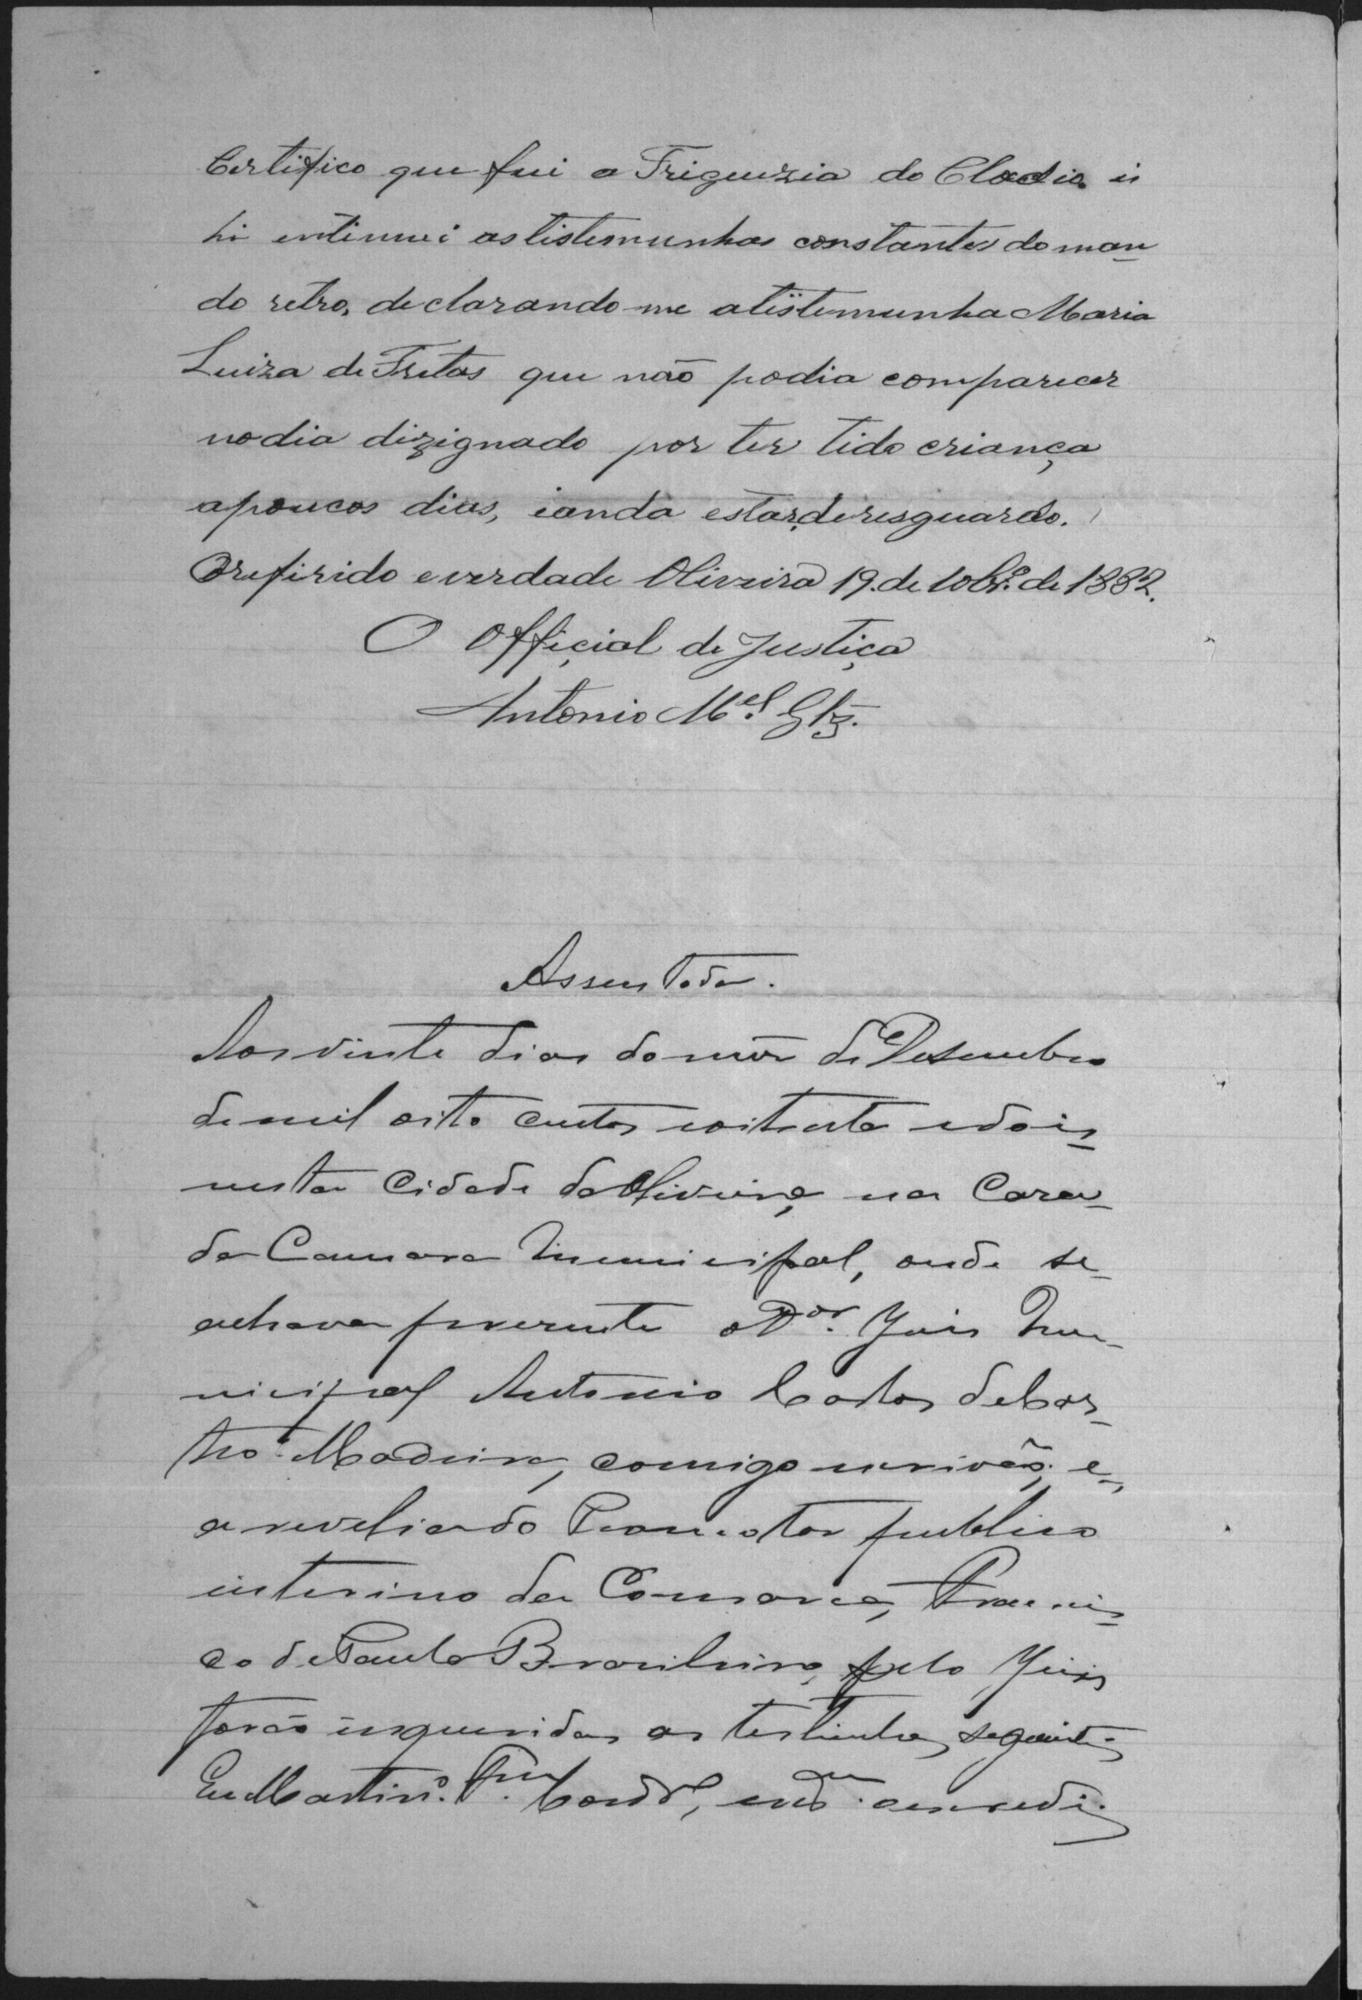 Certifico que fui a Friguizia do Cladio ii
hi intimei as tistimunhas constantes do man
do retro, declarando-me a tistimunha Maria
Luiza de Fretas que não podia comparecer
no dia dizignado por ter tido criança
a poucos dias, i anda estar de resguardo.
O refirido e verdade Oliveira 19. de 10br.º de 1882.
O Official de Justiça
Antonio M.el Glz.
Assentada.
Aos vinte dias do mez de Desembro
de mil oito centos e oitenta e dois
nesta Cidade da Oliveira, na Caza
da Camara Municipal, onde se
achava prezente o D.or Juis Mu
nicipal Antonio Carlos de Cas
tro Madeira, comigo escrivão, e,
a revelia do Promotor publico
interino da Comarca, Francis
co de Paula Brasileiro, pelo Juis
forão inqueridas as testinhas seguintes
Eu Martin.º F. escredi.